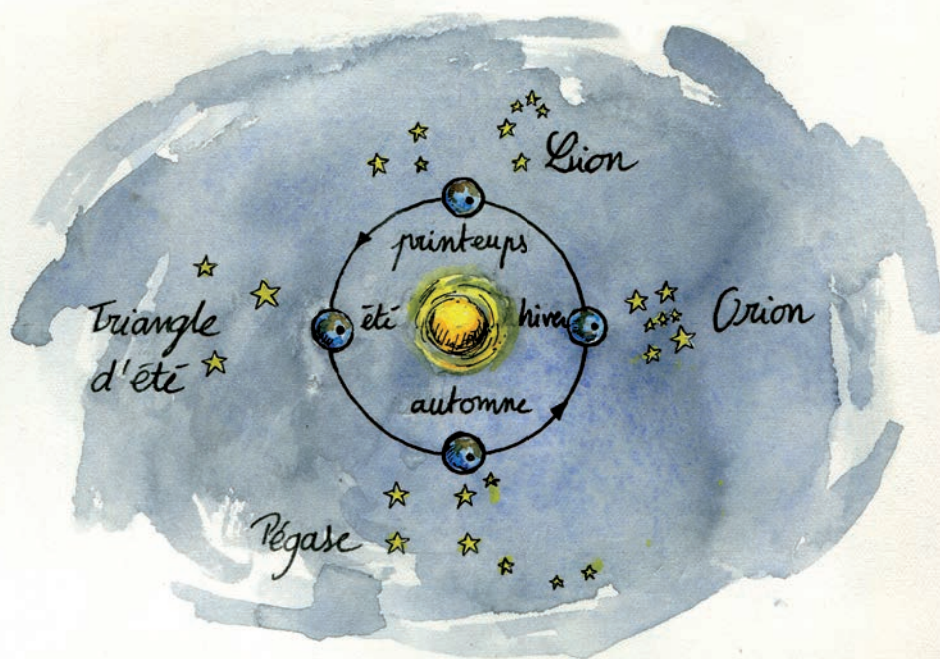 Lion
printemps
Triangle
d'été
été
hiver
Orion
automne
Pégase